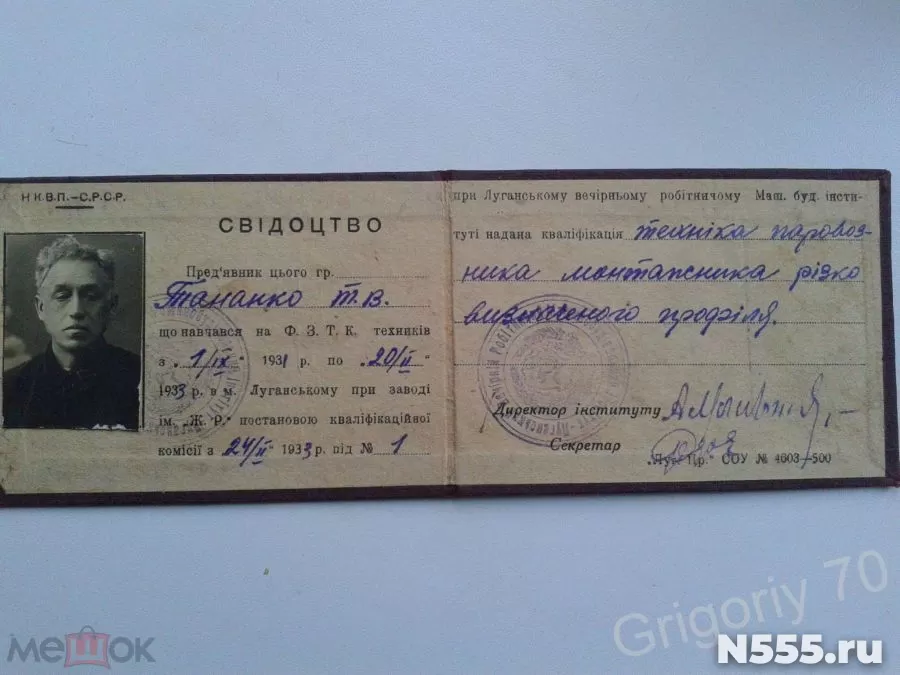 Н К.В.П.–С.Р.С.Р.
СВІДОЦТВО
Пред'явник цього гр.
Тананко Т.В.
що навчався на Ф.З.Т.К. техників
з „1/ІХ" 1931 р. по „20/ІІ"
1933 р. в м. Луганському при заводі
ім. „Ж. Р." постановою кваліфікаційної
комісії з „24/ІІ" 1933 р. під № 1
при Луганському вечірньому робітничому Маш. буд. інсти-
туті надана кваліфікація техніка паровоз-
ника монтажника різко
визначеного профіля.
Директор інституту
Секретар
СОУ № 4603–500
Grigoriy 70
мешок
N555.ru